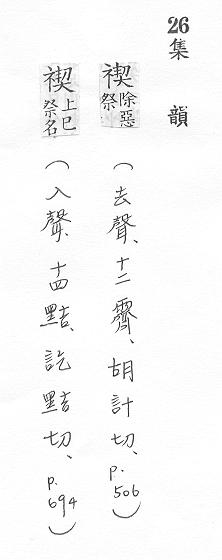 26 集韻
禊除惡祭（去聲、十二霽、胡計切、p.506）
禊上巳祭名（入聲、十四黠、訖黠切、p.694）